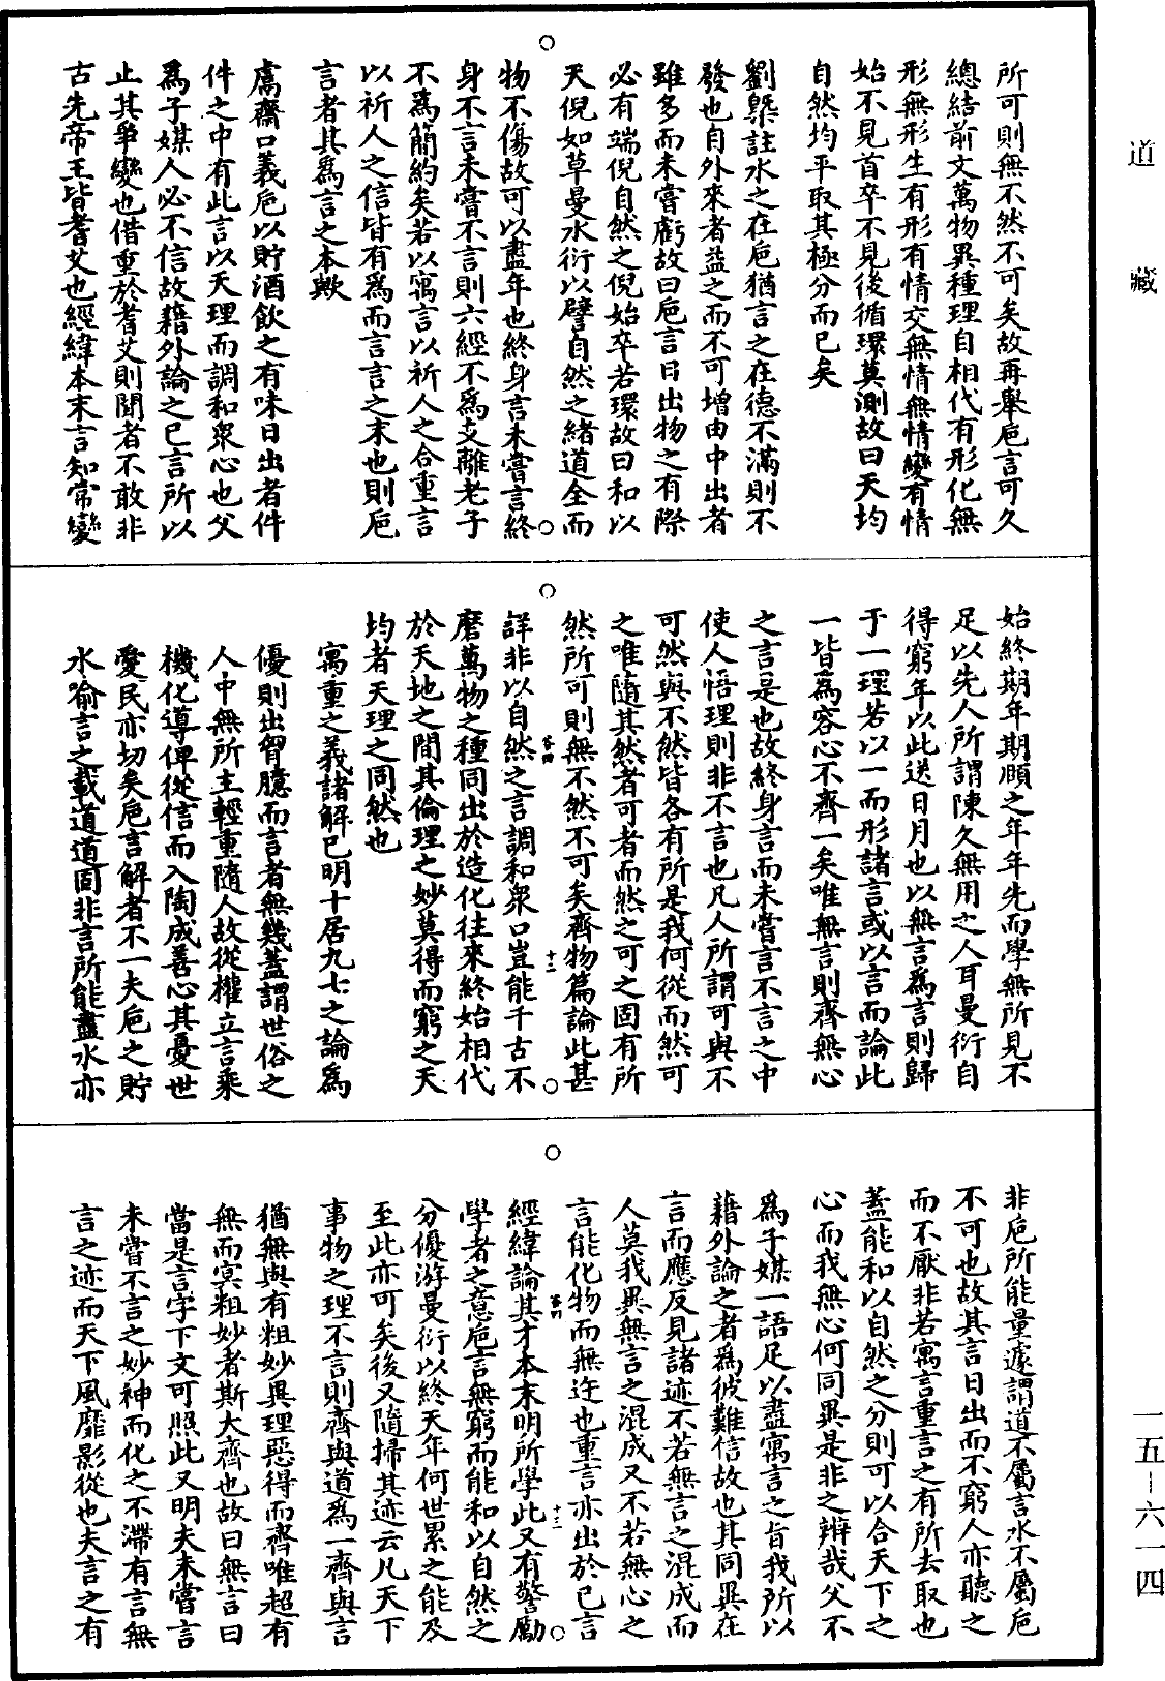 道藏
所可則無不然不可矣故再舉巵言可久
總結前文萬物異種理自相代有形化無
形無形生有形有情交無情無情變有情
始不見首卒不見後循環莫測故曰天均
自然均平取其極分而已矣
劉槩註水之在巵猶言之在德不滿則不
發也自外來者益之而不可增由中出者
雖多而未嘗虧故曰巵言日出物之有際
必有端倪自然之倪始卒若環故曰和以
天倪如草曼水衍以譬自然之緒道全而
物不傷故可以盡年也終身言未嘗言終
身不言未嘗不言則六經不爲支離老子
不爲簡約矣若以寓言以祈人之合重言
以祈人之信皆有爲而言言之末也則巵
言者其爲言之本歟
鬳齋口義巵以貯酒飲之有味日出者件
件之中有此言以天理而調和衆心也父
爲子媒人必不信故藉外論之已言所以
止其爭變也借重於耆艾則聞者不敢非
古先帝王皆耆艾也經緯本末言知常變
始終期年期頤之年年先而學無所見不
足以先人所謂陳久無用之人耳曼衍自
得窮年以此送日月也以無言爲言則歸
于一理若以一而形諸言或以言而論此
一皆爲容心不齊一矣唯無言則齊無心
之言是也故終身言而未嘗言不言之中
使人悟理則非不言也凡人所謂可與不
可然與不然皆各有所是我何從而然可
之唯隨其然者可者而然之可之固有所
然所可則無不然不可矣齊物篇論此甚
詳非以自然之言調和衆口豈能千古不
磨萬物之種同出於造化往來終始相代
於天地之間其倫理之妙莫得而窮之天
均者天理之同然也
寓重之義諸解已明十居九七之論爲
優則出胷臆而言者無幾蓋謂世俗之
人中無所主輕重隨人故從權立言乘
機化導俾從信而入陶成善心其憂世
愛民亦切矣巵言解者不一夫巵之貯
水喻言之載道道固非言所能盡水亦
非巵所能量遽謂道不屬言水不屬巵
不可也故其言日出而不窮人亦聽之
而不厭非若寓言重言之有所去取也
蓋能和以自然之分則可以合天下之
心而我無心何同異是非之辨哉父不
爲子媒一語足以盡寓言之旨我所以
藉外論之者爲彼難信故也其同異在
言而應反見諸迹不若無言之混成而
人莫我異無言之混成又不若無心之
言能化物而無迕也重言亦出於已言
經緯論其才本末明所學此又有警勵
學者之意巵言無窮而能和以自然之
分優游曼衍以終天年何世累之能及
至此亦可矣後又隨掃其迹云凡天下
事物之理不言則齊與道爲一齊與言
猶無與有粗妙異理惡得而齊唯超有
無而冥粗妙者斯大齊也故曰無言曰
當是言字下文可照此又明夫未嘗言
未嘗不言之妙神而化之不滯有言無
言之迹而天下風靡影從也夫言之有
一五-六一四